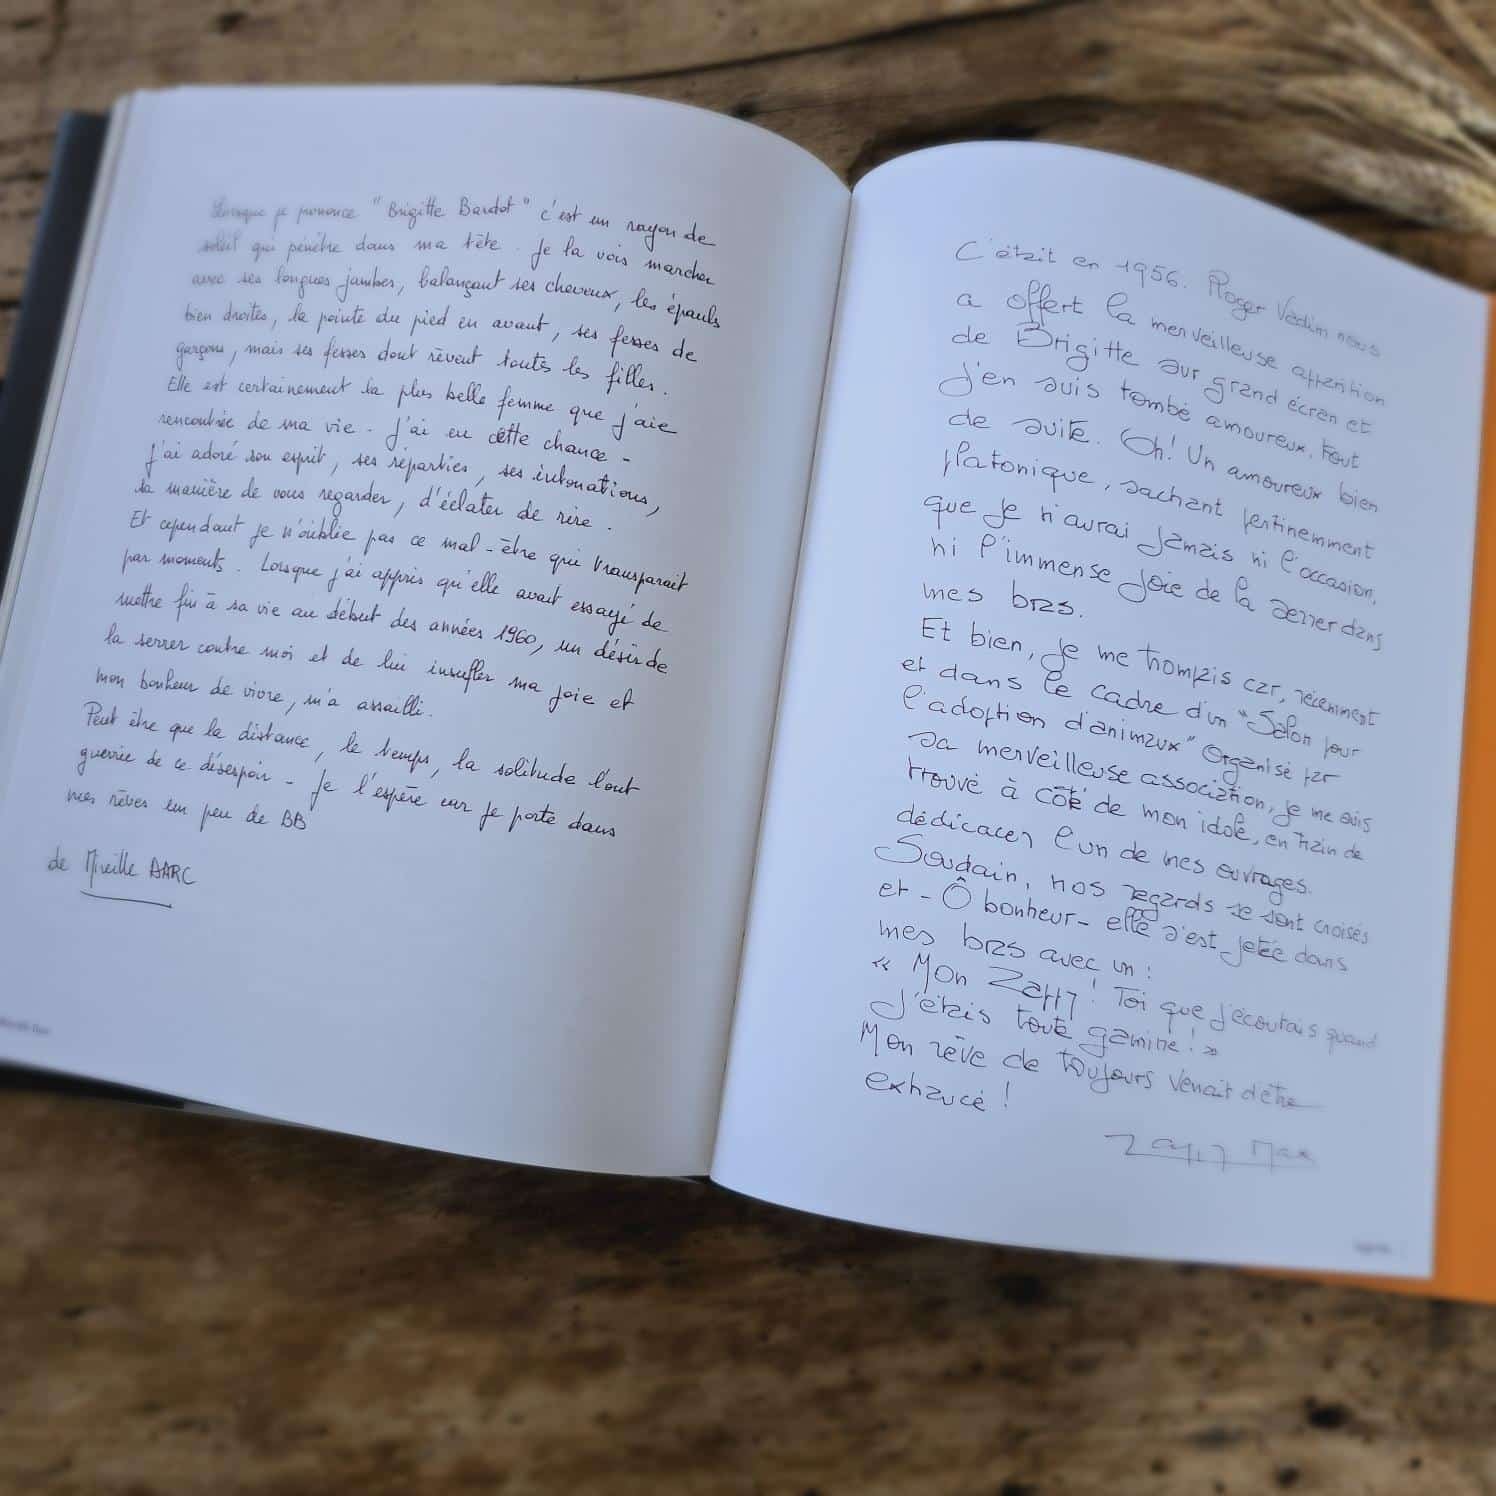 Lorsque je prononce "Brigitte Bardot" c'est un rayon de
soleil qui pénètre dans ma tête. Je la vois marcher
avec ses longues jambes, balançant ses cheveux, les épaules
bien droites, la pointe du pied en avant, ses fesses de
garçons, mais ses fesses dont rêvent toutes les filles.
Elle est certainement la plus belle femme que j'aie
rencontrée de ma vie - J'ai eu cette chance -
J'ai adoré son esprit, ses réparties, ses intonations,
sa manière de vous regarder, d'éclater de rire.
Et cependant je n'oublie pas ce mal-être qui transparait
par moments. Lorsque j'ai appris qu'elle avait essayé de
mettre fin à sa vie au début des années 1960, un désir de
la serrer contre moi et de lui insuffler ma joie et
mon bonheur de vivre, m'a assailli.
Peut être que la distance, le temps, la solitude l'ont
guérrie de ce désespoir - Je l'espère car je porte dans
mes rêves un peu de BB
de Mireille DARC
C'était en 1956. Roger Vadim nous
a offert la merveilleuse apparition
de Brigitte sur grand écran et
j'en suis tombé amoureux. tout
de suite. Oh! Un amoureux bien
platonique, sachant pertinemment
que je n'aurai jamais ni l'occasion,
ni l'immense joie de la serrer dans
mes bras.
Et bien, je me trompais car, récemment
et dans le cadre d'un "Salon pour
l'adoption d'animaux" organisé par
sa merveilleuse association, je me suis
trouvé à côté de mon idole, en train de
dédicacer l'un de mes ouvrages.
Soudain, nos regards se sont croisés
et - Ô bonheur - elle s'est jetée dans
mes bras avec un :
« Mon Zappy ! Toi que j'écoutais quand
j'étais toute gamine ! »
Mon rêve de toujours venait d'être
exhaucé !
Zappy Max